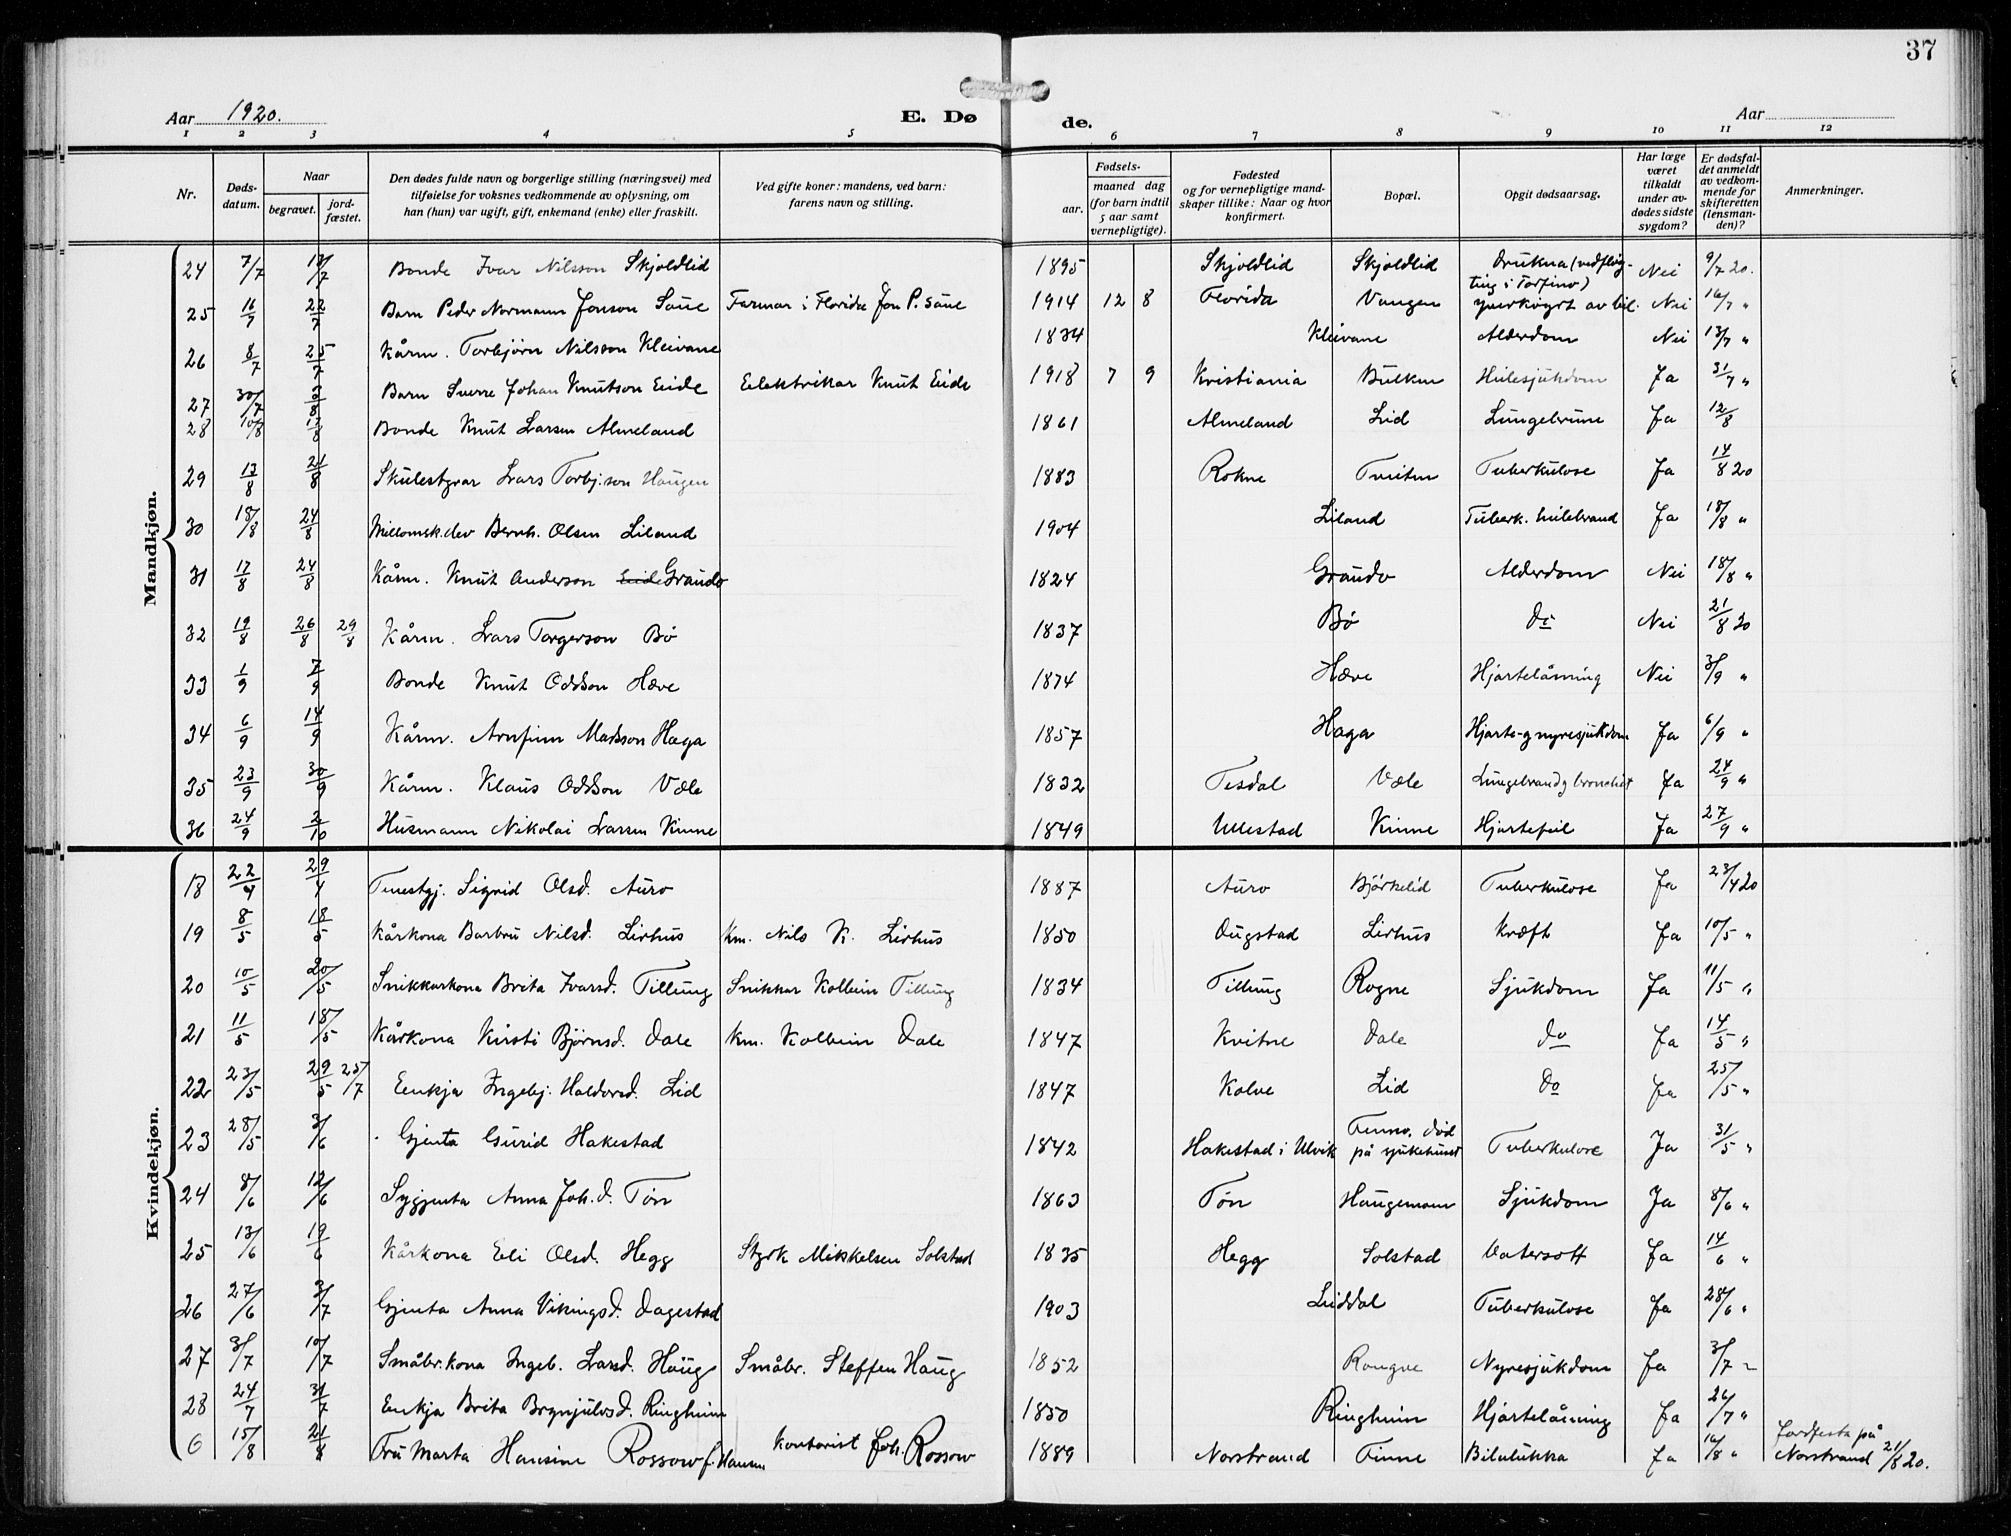 37
Aar 1920. E. Dø de. Aar
1 2 3 4 5 6 7 8 9 10 11 12
Nr. Døds-datum. Naar begravet. jord-fæstet. Den dødes fulde navn og borgerlige stilling (næringsvei) med tilføielse for voksnes vedkommende av oplysning, om han (hun) var ugift, gift, enkemand (enke) eller fraskilt. Ved gifte koner: mandens, ved barn: farens navn og stilling. Fødsels- aar. maaned dag (for barn indtil 5 aar samt vernepligtige). Fødested og for vernepligtige mandskaper tillike: Naar og hvor konfirmert. Bopæl. Opgit dødsaarsag. Har læge været tilkaldt under avdødes sidste sygdom? Er dødsfaldet anmeldt av vedkommende for skifteretten (lensmanden)? Anmerkninger.
Mandkjøn.
24 7/7 13/7 Bonde Ivar Nilsson Skjoldlid 1895 Skjoldlid Skjoldlid Drukna (vedfløyting i Torfino) Nei 9/7 20.
25 16/7 22/7 Barn Peder Normann Jonson Saue Farmar i Florida Jon P. Saue 1914 12 8 Florida Vangen yverkøyrt av bil. Nei 16/7 "
26 8/7 25/7 Kårm. Torbjørn Nilsson Kleivane 1834 Kleivane Alderdom Nei 13/7 "
27 30/7 3/8 Barn Sverre Johan Knutson Eide Elektrikar Knut Eide 1918 7 9 Kristiania Bulken Heilesjukdom Ja 31/7 "
28 10/8 17/8 Bonde Knut Larsen Almeland 1861 Almeland Lid Lungebrune Ja 12/8
29 13/8 21/8 Skulestyrar Lars Torbj.son Haugen 1883 Rokne Tveiten Tuberkulose Ja 14/8 20
30 18/8 24/8 Millomsk.elev Bernh. Olsen Liland 1904 Liland Tuberk. heilebrand Ja 18/8 "
31 17/8 24/8 Kårm. Knut Anderson Eide Graudo 1824 Graudo Alderdom Nei 18/8 "
32 19/8 26/8 29/8 Kårm. Lars Torgerson Bø 1837 Bø do Nei 21/8 20
33 1/9 7/9 Bonde Knut Oddson Hæve 1874 Hæve Hjartelåming Nei 3/9 "
34 6/9 14/9 Kårm. Arnfinn Madsson Haga 1857 Haga Hjarte- og nyresjukdom Ja 6/9 "
35 23/9 30/9 Kårm. Klaus Oddson Væle 1832 Tesdal Væle Lungebrand og bronchit Ja 24/9 "
36 24/9 2/10 Husmann Nikolai Larsen Kinne 1849 Ullestad Kinne Hjartefeil Ja 27/9 "
Kvindekjøn.
18 22/4 29/4 Tenestgj. Sigrid Olsd. Auro 1887 Auro Bjørkelid Tuberkulose Ja 23/4 20
19 8/5 18/5 Kårkona Barbru Nilsd. Lirhus Km. Nils K. Lirhus 1850 Dugstad Lirhus Kræft Ja 10/5 "
20 10/5 20/5 Snikkarkona Brita Ivarsd. Tillung Snikkar Kolbein Tillung 1834 Tillung Rogne Sjukdom Ja 11/5 "
21 11/5 18/5 Kårkona Kirsti Bjørnsd. Dale Km. Kolbein Dale 1847 Kvitne Dale do Ja 14/5 "
22 23/5 29/5 25/7 Enkja Ingebj. Haldorsd. Lid 1847 Kolve Lid Do Ja 25/5 "
23 28/5 3/6 Gjenta Gurid Hakestad 1842 Hakestad i Ulvik Finno, død på sjukehuset Tuberkulose Ja 31/5 "
24 8/6 12/6 Sygjenta Anna Joh.d. Tøn 1863 Tøn Haugemoen Sjukdom Ja 8/6 "
25 13/6 19/6 Kårkona Eli Olsd. Hegg Styrk Mikkelsen Solstad 1835 Hegg Solstad Vatersott Ja 14/6 "
26 27/6 3/7 Gjenta Anna Vikingsd. Dagestad 1903 Liddal Tuberkulose Ja 28/6 "
27 3/7 10/7 Småbr.kona Ingeb. Larsd. Haug Småbr. Steffen Haug 1852 Rongve Nyresjukdom Ja 3/7 "
28 24/7 31/7 Enkja Brita Brynjulvsd. Ringheim 1850 Ringheim Hjartelåming Ja 26/7 "
6 15/8 21/8 Fru Marta Hansine Rossow f. Hansen Kontorist Joh. Rossow 1889 Norstrand Finne Bilulukka Ja 16/8 " Jordfesta på Norstrand 21/8 20.